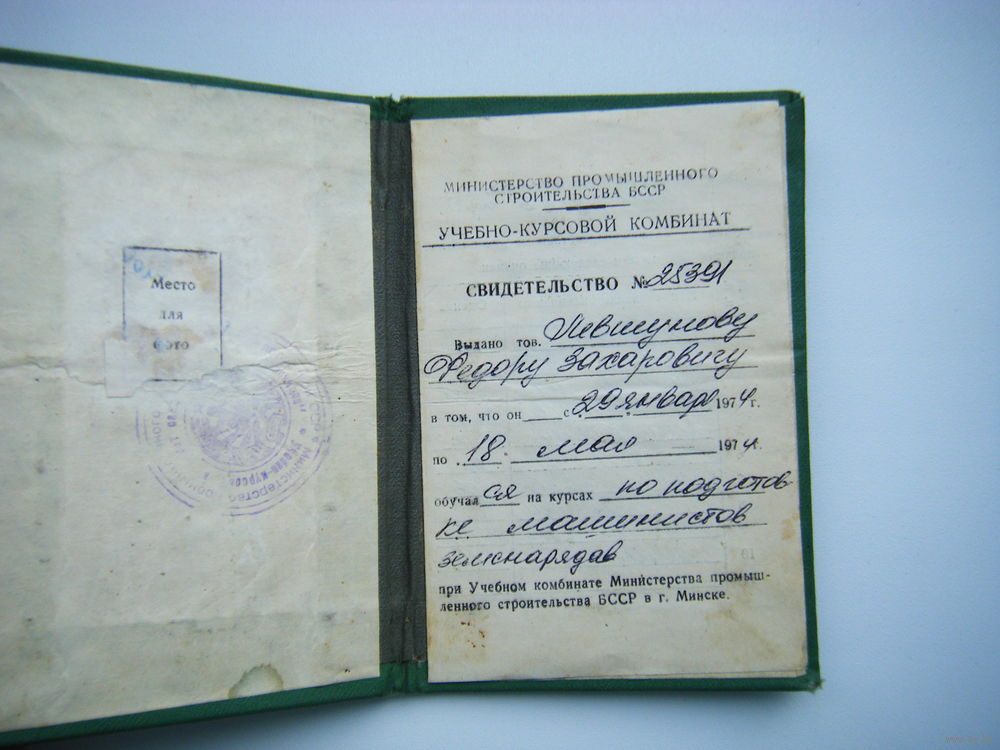 Место
для
фото
МИНИСТЕРСТВО ПРОМЫШЛЕННОГО
СТРОИТЕЛЬСТВА БССР
УЧЕБНО-КУРСОВОЙ КОМБИНАТ
СВИДЕТЕЛЬСТВО № 25391
Выдано тов. Левшунову
Федору Захаровичу
в том, что он с 29 января 1974 г.
по 18 мая 1974 г.
обучался на курсах по подготов
ке машинистов
земснарядав
при Учебном комбинате Министерства промыш-
ленного строительства БССР в г. Минске.